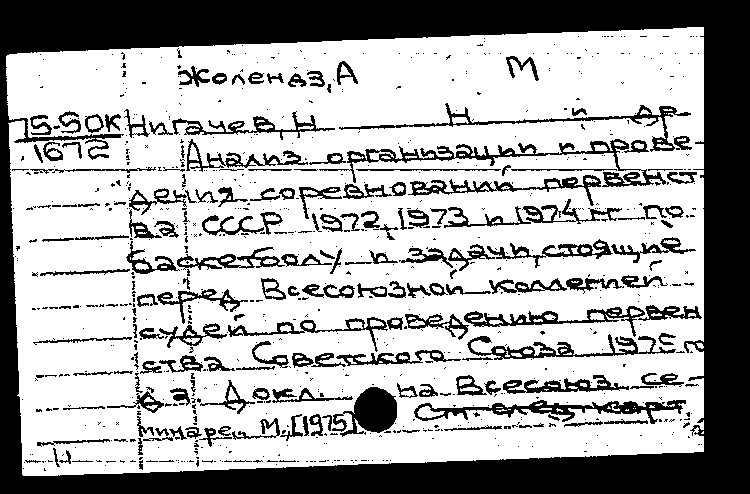 Жолендз, А М
75-50К Нигачев, Н Н и др
1672 Анализ организации и прове-
дения соревнований первенст-
ва СССР 1972, 1973 и 1974 гг по
баскетболу и задачи, стоящие
перед Всесоюзной коллегией
судей по проведению первен
ства Советского Союза 1975 го
да. Докл. на Всесоюз. се-
минаре.. М., [1975] См. след. карт.